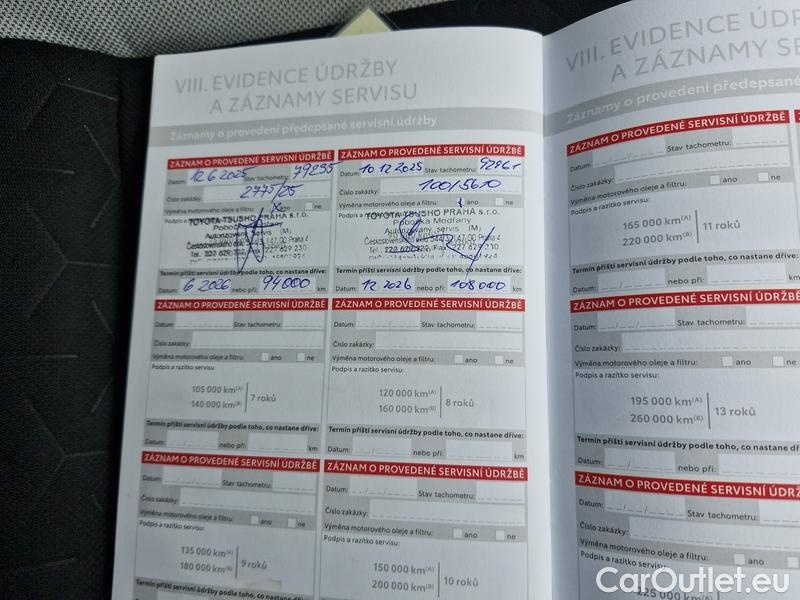 VIII. EVIDENCE ÚDRŽBY
A ZÁZNAMY SERVISU
Záznamy o provedení předepsané servisní údržby
ZÁZNAM O PROVEDENÉ SERVISNÍ ÚDRŽBĚ
Datum: 12.6.2025 Stav tachometru: 79235
Číslo zakázky: 2775/25
Výměna motorového oleje a filtru: ano ne
Podpis a
TOYOTA TSUSHO PRAHA s.r.o.
Autorizovaný servis (M)
Termín příští servisní údržby podle toho, co nastane dříve:
6.2026 nebo při: 94000 km
ZÁZNAM O PROVEDENÉ SERVISNÍ ÚDRŽBĚ
Datum: 10.12.2025 Stav tachometru:
Číslo zakázky: 100/5610
Výměna motorového oleje a filtru:
Podpis a
TOYOTA TSUSHO PRAHA s.r.o.
Pobočka Modřany
Autorizovaný servis (M)
Termín příští servisní údržby podle toho, co nastane dříve:
12.2026 nebo při: 108000 km
ZÁZNAM O PROVEDENÉ SERVISNÍ ÚDRŽBĚ
Datum: Stav tachometru:
Číslo zakázky:
Výměna motorového oleje a filtru: ano ne
Podpis a razítko servisu:
105 000 km(A)
140 000 km(B)
7 roků
Termín příští servisní údržby podle toho, co nastane dříve:
Datum: nebo při: km
ZÁZNAM O PROVEDENÉ SERVISNÍ ÚDRŽBĚ
Datum: Stav tachometru:
Číslo zakázky:
Výměna motorového oleje a filtru: ano ne
Podpis a razítko servisu:
120 000 km(A)
160 000 km(B)
8 roků
Termín příští servisní údržby podle toho, co nastane dříve:
Datum: nebo při: km
ZÁZNAM O PROVEDENÉ SERVISNÍ ÚDRŽBĚ
Datum: Stav tachometru:
Číslo zakázky:
Výměna motorového oleje a filtru: ano ne
Podpis a razítko servisu:
135 000 km(A)
180 000 km(B)
9 roků
Termín příští servisní údržby podle toho, co nastane dříve:
ZÁZNAM O PROVEDENÉ SERVISNÍ ÚDRŽBĚ
Datum: Stav tachometru:
Číslo zakázky:
Výměna motorového oleje a filtru: ano ne
Podpis a razítko servisu:
150 000 km(A)
200 000 km(B)
10 roků
VIII. EVIDENCE ÚDR
A ZÁZNAMY SE
Záznamy o provedení předepsané
ZÁZNAM O PROVEDENÉ SERVISNÍ ÚDRŽBĚ
Datum: Stav tachometru:
Číslo zakázky:
Výměna motorového oleje a filtru: ano ne
Podpis a razítko servisu:
165 000 km(A)
220 000 km(B)
11 roků
Termín příští servisní údržby podle toho, co nastane
Datum: nebo při:
ZÁZNAM O PROVEDENÉ SERVISNÍ ÚDRŽBĚ
Datum: Stav tachometru:
Číslo zakázky:
Výměna motorového oleje a filtru: ano
Podpis a razítko servisu:
195 000 km(A)
260 000 km(B)
13 roků
Termín příští servisní údržby podle toho, co nastane
Datum: nebo při:
ZÁZNAM O PROVEDENÉ SERVISNÍ ÚDR
Datum: Stav tachometru:
Číslo zakázky:
Výměna motorového oleje a filtru:
Podpis a razítko servisu:
225 000 km(A)
CarOutlet.eu